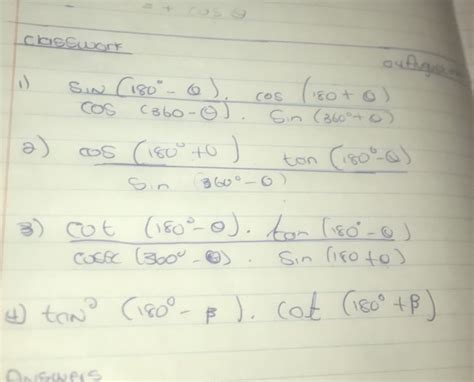 = + cos θ
classwork
1) SIN (180° - θ). cos (180 + θ)
cos (360 - θ). Sin (360° + θ)
2) cos (180° + θ) tan (180° - θ)
Sin (360° - θ)
3) cot (180° - θ). tan (180° - θ)
cosec (360° - θ). Sin (180 + θ)
4) tan (180° - β). Cot (180° + β)
Answers